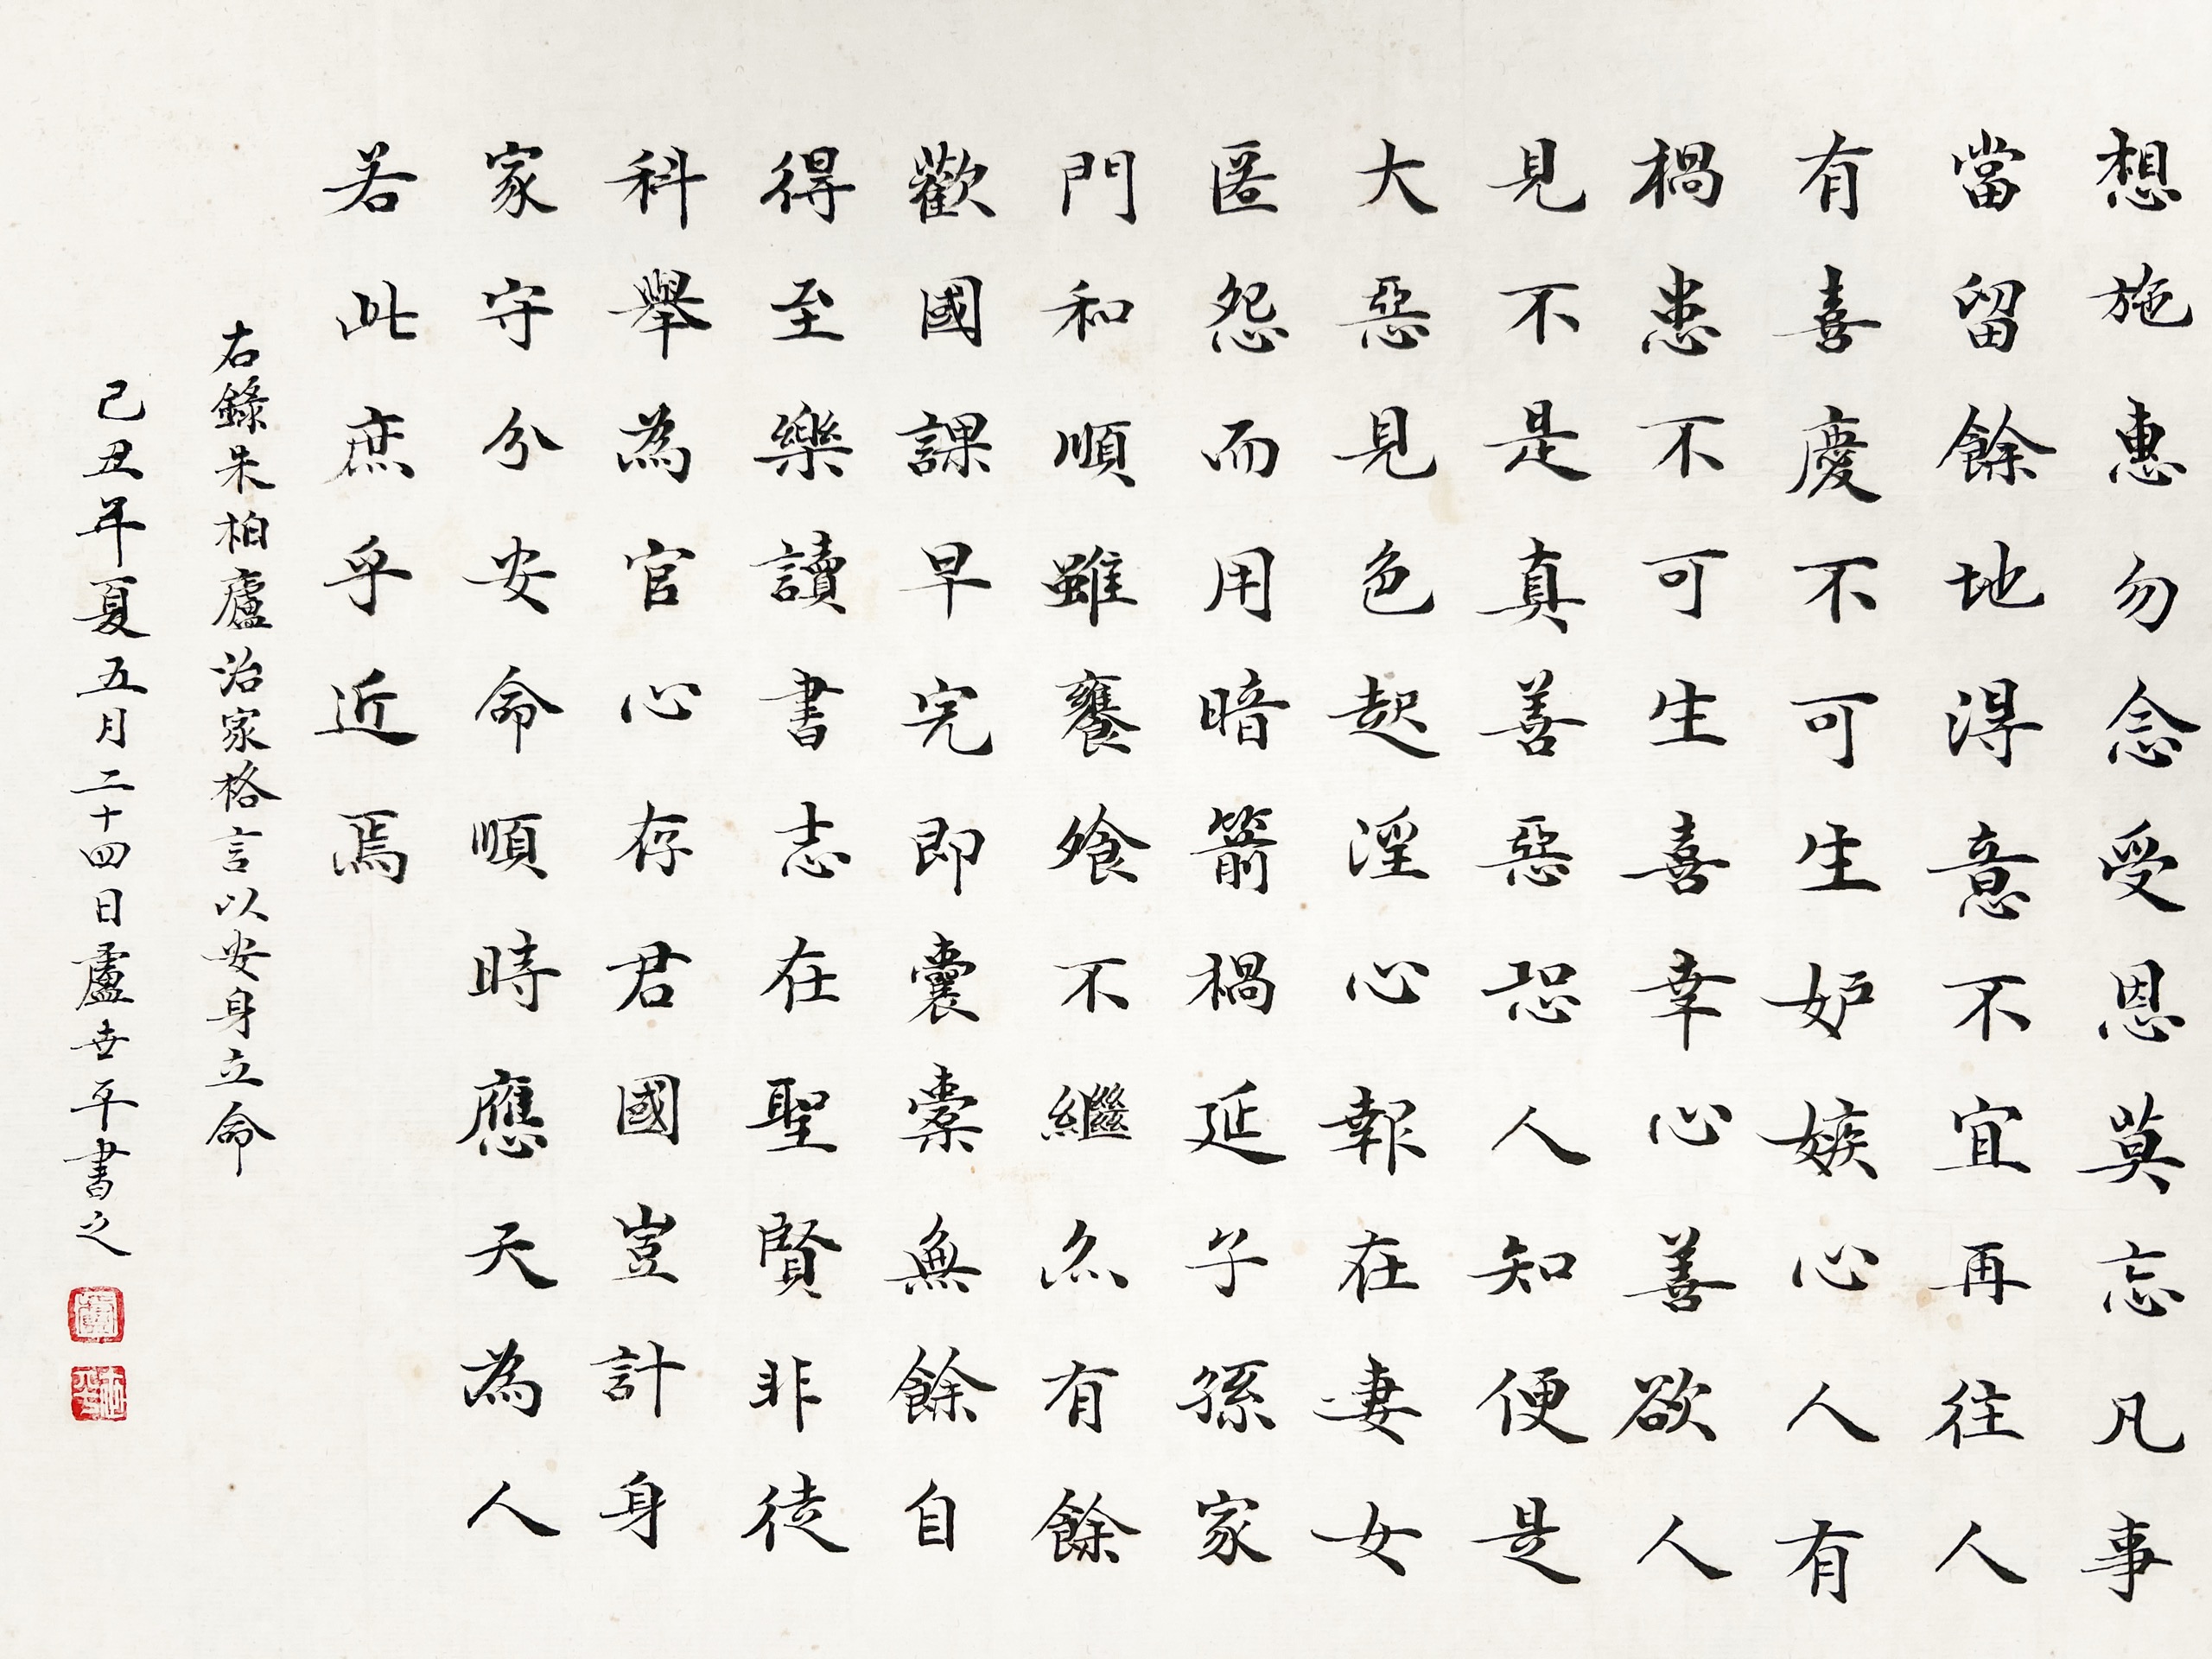 想施惠勿念受恩莫忘凡事
當留餘地得意不宜再往人
有喜慶不可生妒嫉心人有
禍患不可生喜幸心善欲人
見不是真善惡恐人知便是
大惡見色起淫心報在妻女
匿怨而用暗箭禍延子孫家
門和順雖饔飧不繼亦有餘
歡國課早完即囊橐無餘自
得至樂讀書志在聖賢非徒
科舉為官心存君國豈計身
家守分安命順時應天為人
若此庶乎近焉
右錄朱柏廬治家格言以安身立命
己丑年夏五月二十四日盧世平書之
盧
世平